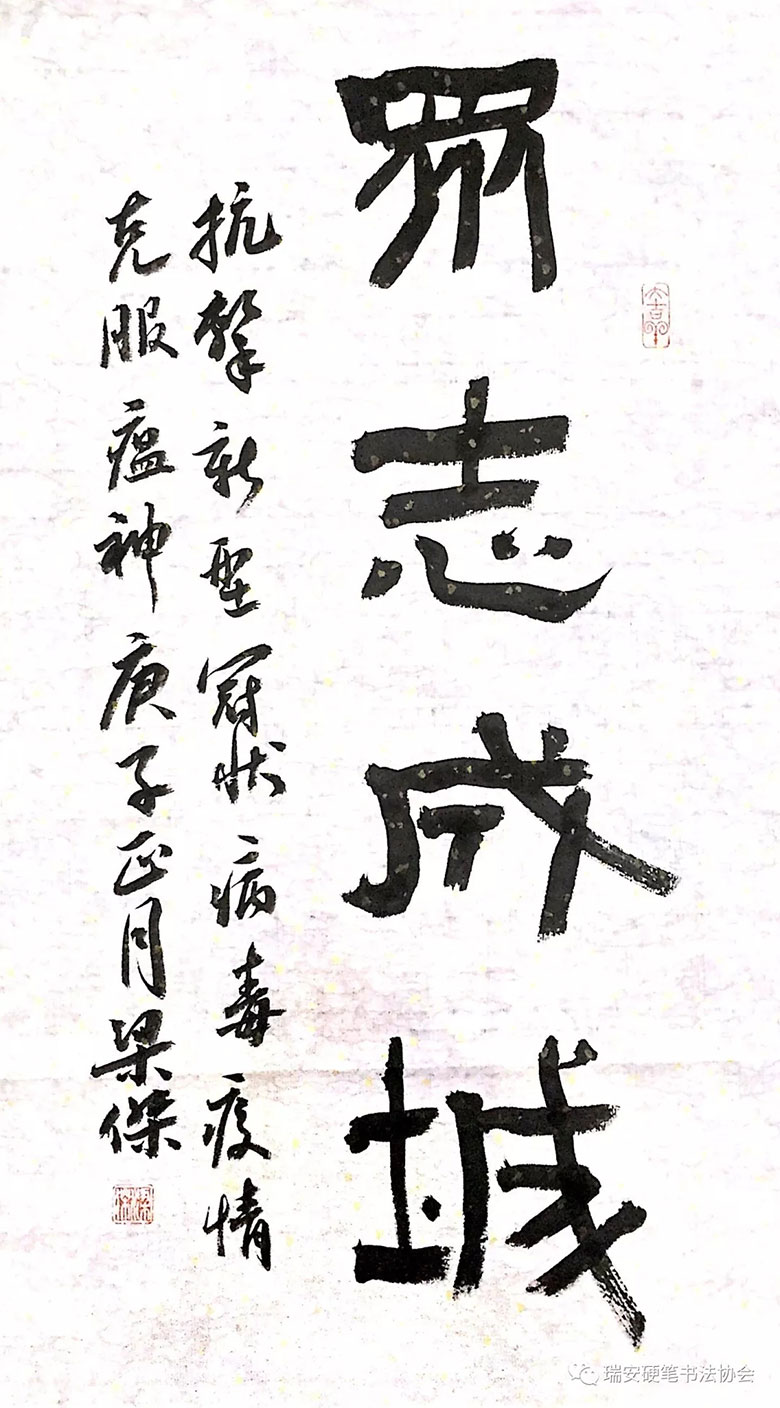 眾志成城
抗擊新型冠状病毒疫情
克服瘟神庚子正月梁傑
瑞安硬笔书法协会